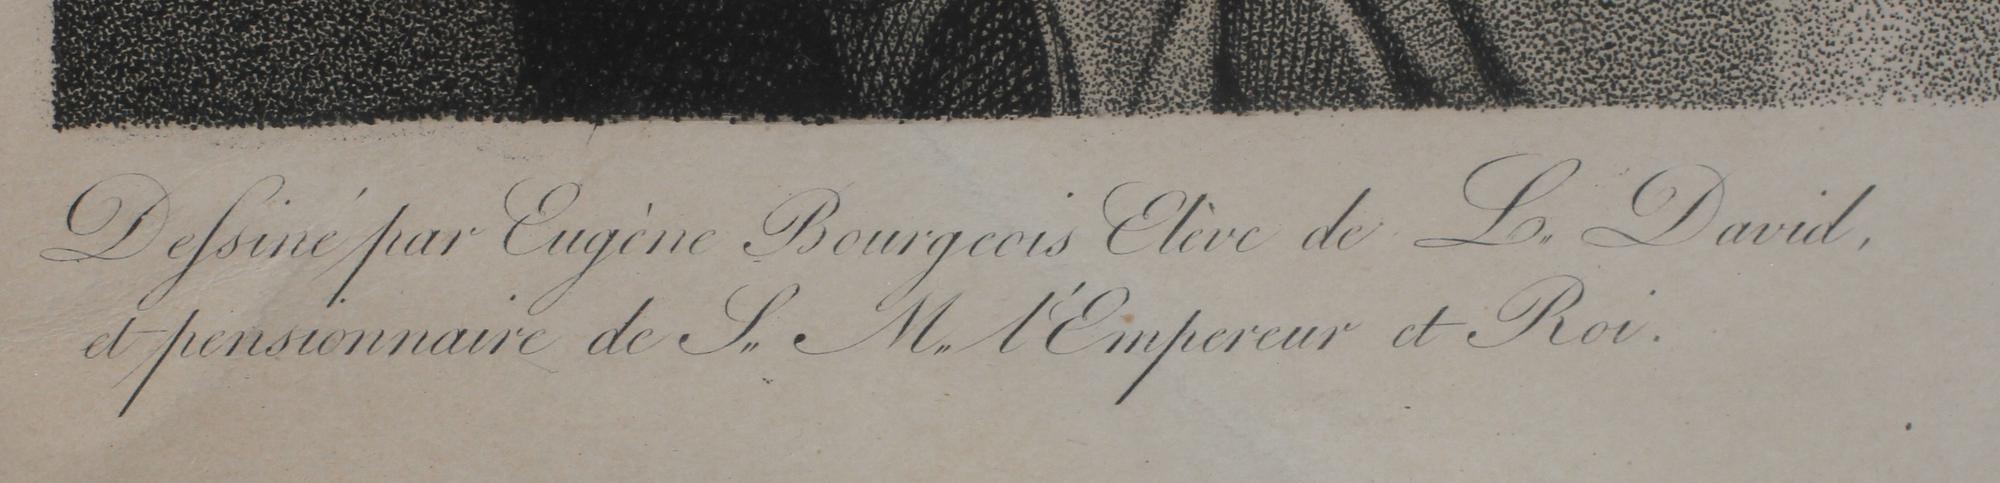 Deſsiné par Eugène Bourgeois Elève de L. David,
et pensionnaire de S. M. l'Empereur et Roi.